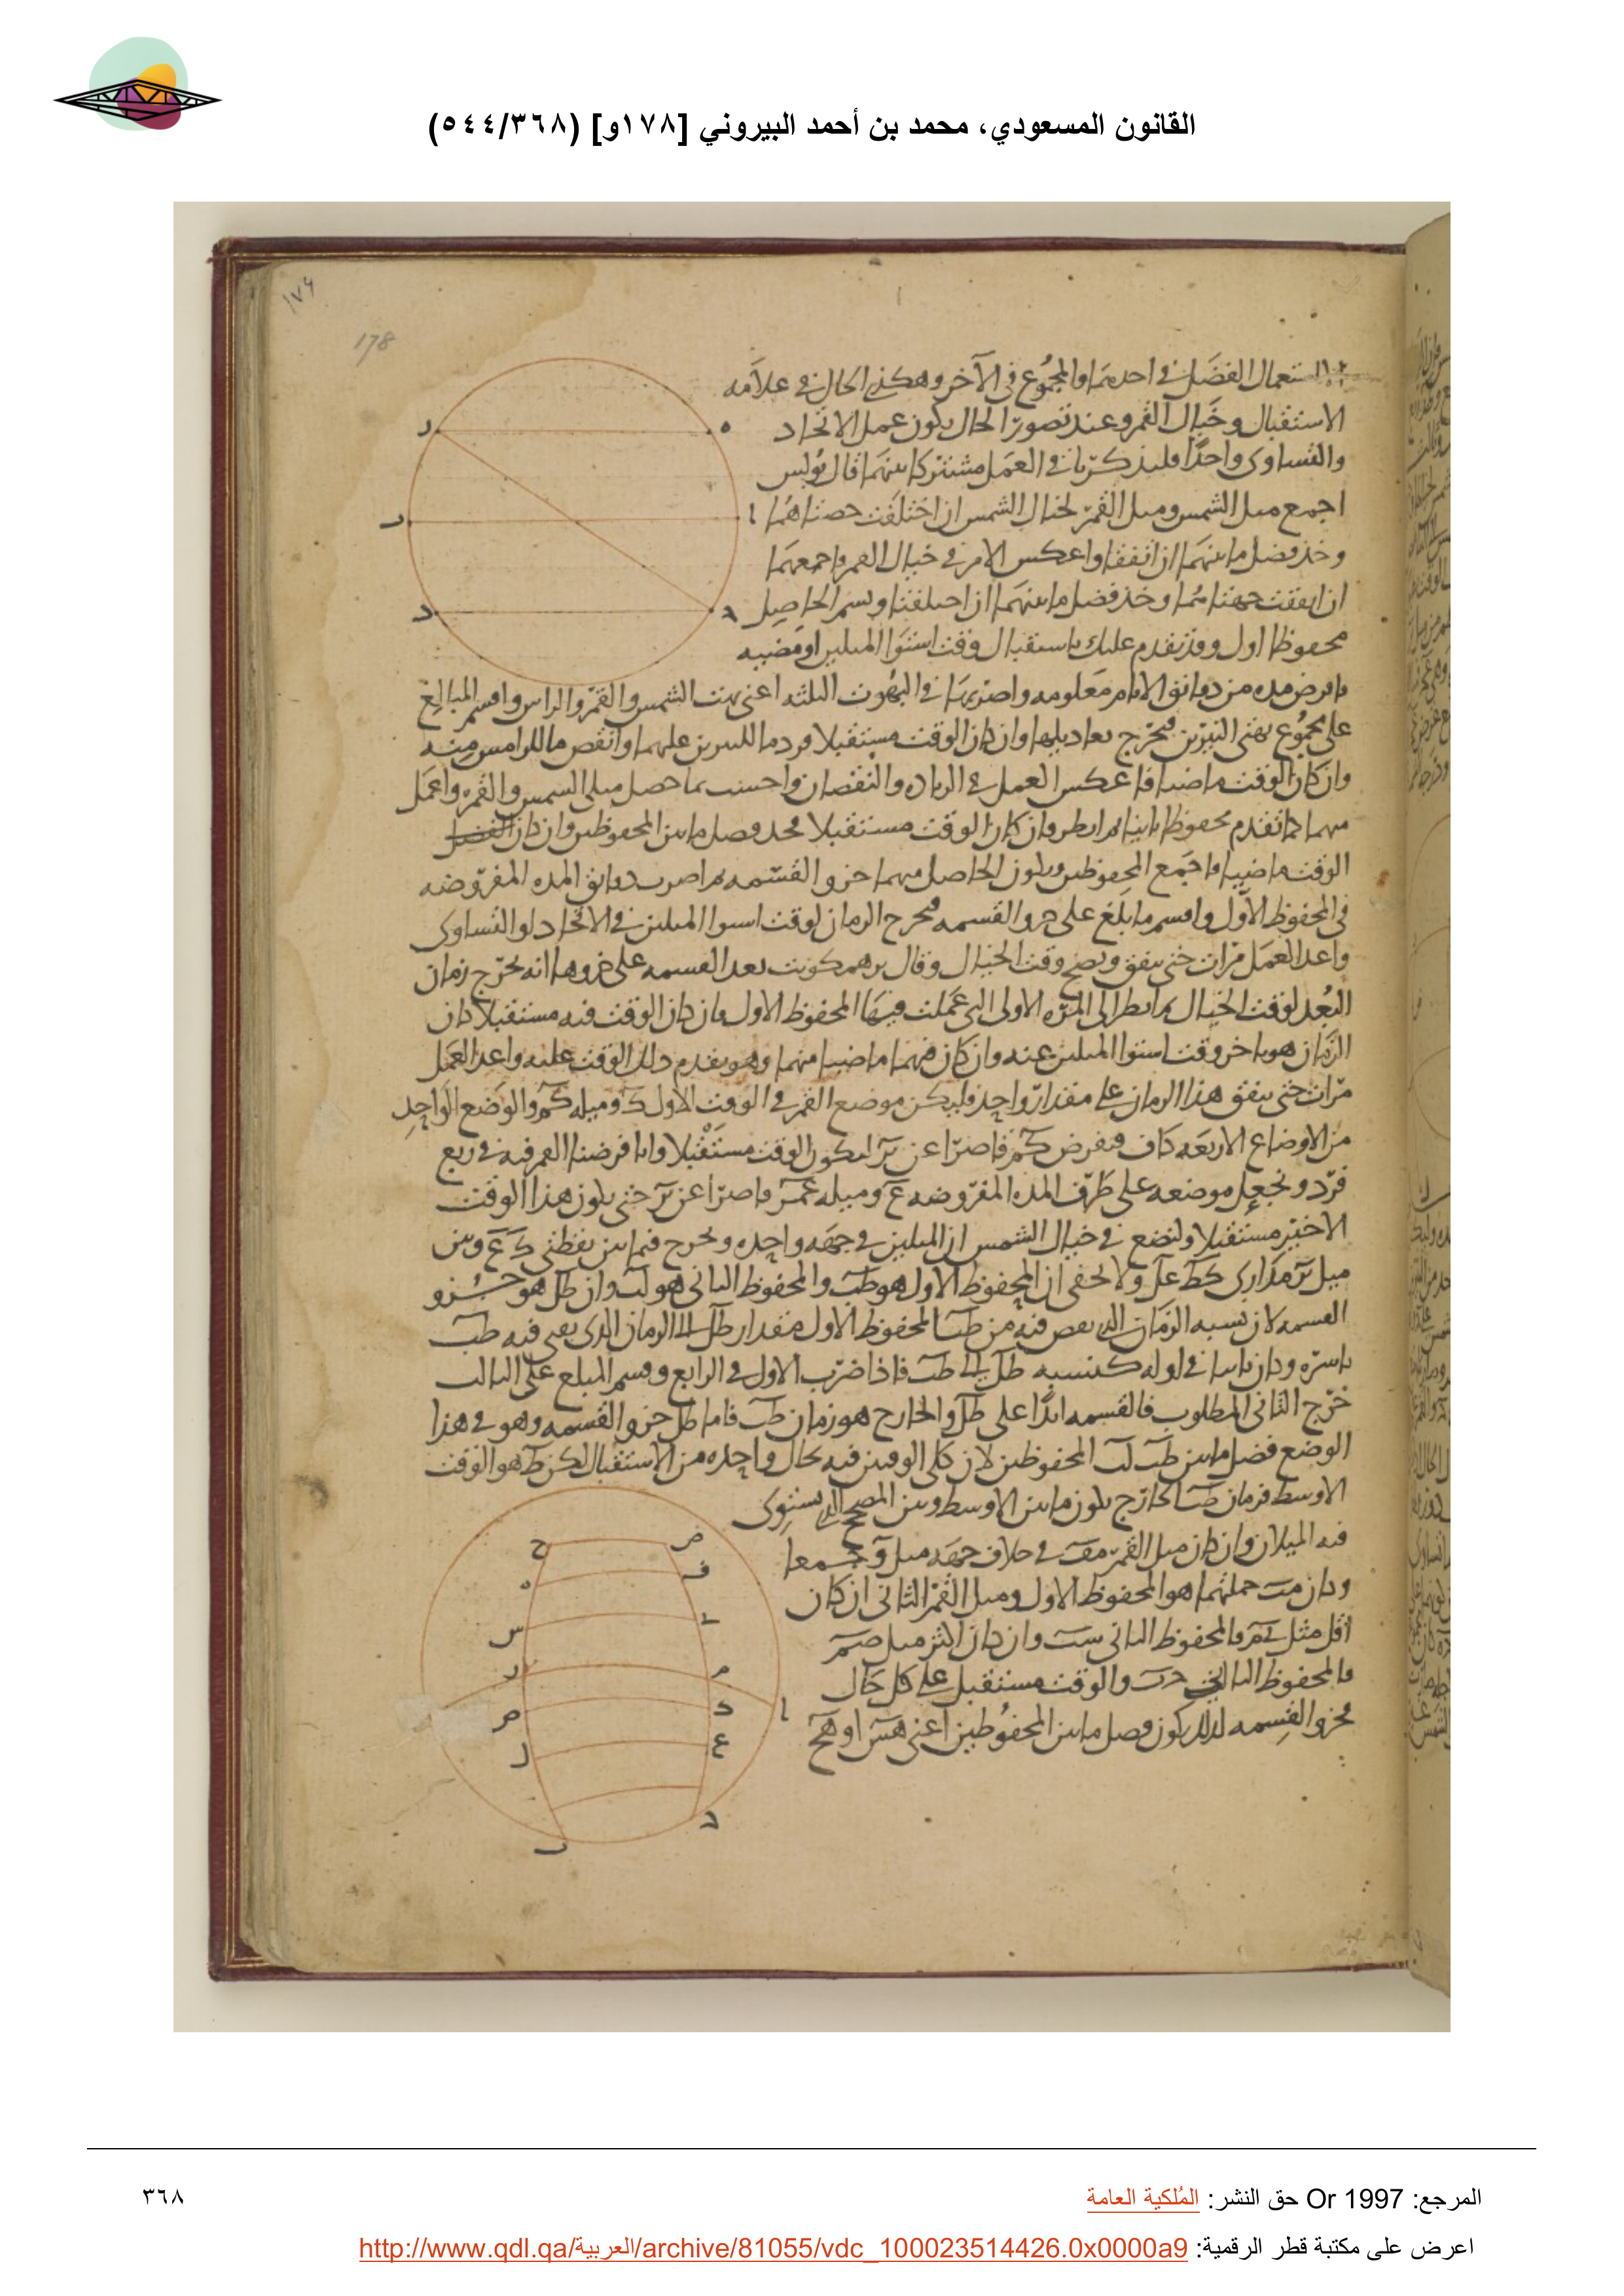 القانون المسعودي، محمد بن أحمد البيروني [١٧٨و] (٥٤٤/٣٦٨)
١٧٤
178
استعمال الفضل في احدهما والمجموع في الآخر وهكذي الحال في علامه
الاستقبال وخيال القمر وعند تصور الحال يكون عمل الاتحاد
والتساوى واحدا فليذكر بان في العمل مشتركا بينهما قال بولس
اجمع ميل الشمس وميل القمر لخيال الشمس ان اختلفت حصتاهما
وخذ فضل ما بينهما ان اتفقتا واعكس الامر في خيال القمر واجمعهما
ان اتفقت جهتاهما وخذ فضل ما بينهما ان اختلفتا وسم الحاصل
محفوظا اول وقد تقدم عليك باستقبال وقت استوا الميلين او مضيه
فافرض مده من دوانق الايام معلومه واضربها في البهوت الثلثه اعنى بهت الشمس والقمر والراس واقسم المبالغ
على مجموع بهتى النيرين فيخرج تعاديلها وان كان الوقت مستقبلا فزد ما للنيرين عليهما وانقص ما للراس منه
وان كان الوقت ماضيا فاعكس العمل في الزياده والنقصان واحسب بما حصل ميلى الشمس والقمر واعمل
بهما كما تقدم محفوظا ثانيا ثم انظر وان كان الوقت مستقبلا فخذ فضل ما بين المحفوظين وان كان
الوقت ماضيا فاجمع المحفوظين ويكون الحاصل منهما جزو القسمه ثم اضرب دوانق المده المفروضه
في المحفوظ الاول واقسم ما بلغ على جزو القسمه فيخرج الزمان لوقت استوا الميلين في الاتحاد او التساوى
واعد العمل مرات حتى يتفق ويصح وقت الخيال وقال برهمكوبت بعد القسمه على جزوها انه يخرج زمان
البعد لوقت الخيال ثم انظر الى المره الاولى التى عملت فيها المحفوظ الاول فان كان الوقت فيه مستقبلا كان
الزمان هو تاخر وقت استوا الميلين عنه وان كان فيهما ماضيا منهما وهو تقدم ذلك الوقت عليه واعد العمل
مرات حتى يتفق هذا الزمان على مقدار واحد فليكن موضع القمر في الوقت الاول ك وميله كم والوضع الواحد
من الاوضاع الاربعه كاف فنفرض كم قاصرا عن بر ليكون الوقت مستقبلا وانا فرضنا القمر فيه في ربع
فرد ونجعل موضعه على طرف المده المفروضه ع وميله عم قاصرا عن بر حتى يكون هذا الوقت
الاخير مستقبلا ولنضع في خيال الشمس ان الميلين في جهه واحده ونخرج فيما بين نقطتى ك ع وبين
ميل بر مدارى كط عل ولا يخفى ان المحفوظ الاول هو طب والمحفوظ الثانى هو لب وان طل هو جزو
القسمه لان نسبه الزمان الذى نقص فيه من طب المحفوظ الاول مقدار طل الى الزمان الذى يفنى فيه طب
باسره وكان ثانيا في اوله كنسبه طل الى طب فاذا ضرب الاول في الرابع وقسم المبلغ على الثالث
خرج الثانى المطلوب فالقسمه ابدا على طل والخارج هو زمان طب فاما طل جزو القسمه وهو في هذا
الوضع فضل ما بين طب لب المحفوظين لان كلى الوقتين فيه بحال واحده من الاستقبال لكن ط هو الوقت
الاوسط فزمان طب الخارج يكون ما بين الاوسط وبين المصحح الذى يستوى
فيه الميلان وان كان ميل القمر في خلاف جهه ميل جمعا
وكان جملتهما هو المحفوظ الاول وميل القمر الثانى ان كان
اقل مثل فالمحفوظ الثانى وان كان اكثر مثل
فالمحفوظ الثانى والوقت مستقبل على كل حال
فجزو القسمه لذلك يكون فضل ما بين المحفوظين اعنى هس او هح
المرجع: Or 1997 حق النشر: المُلكية العامة
٣٦٨
اعرض على مكتبة قطر الرقمية: http://www.qdl.qa/العربية/archive/81055/vdc_100023514426.0x0000a9